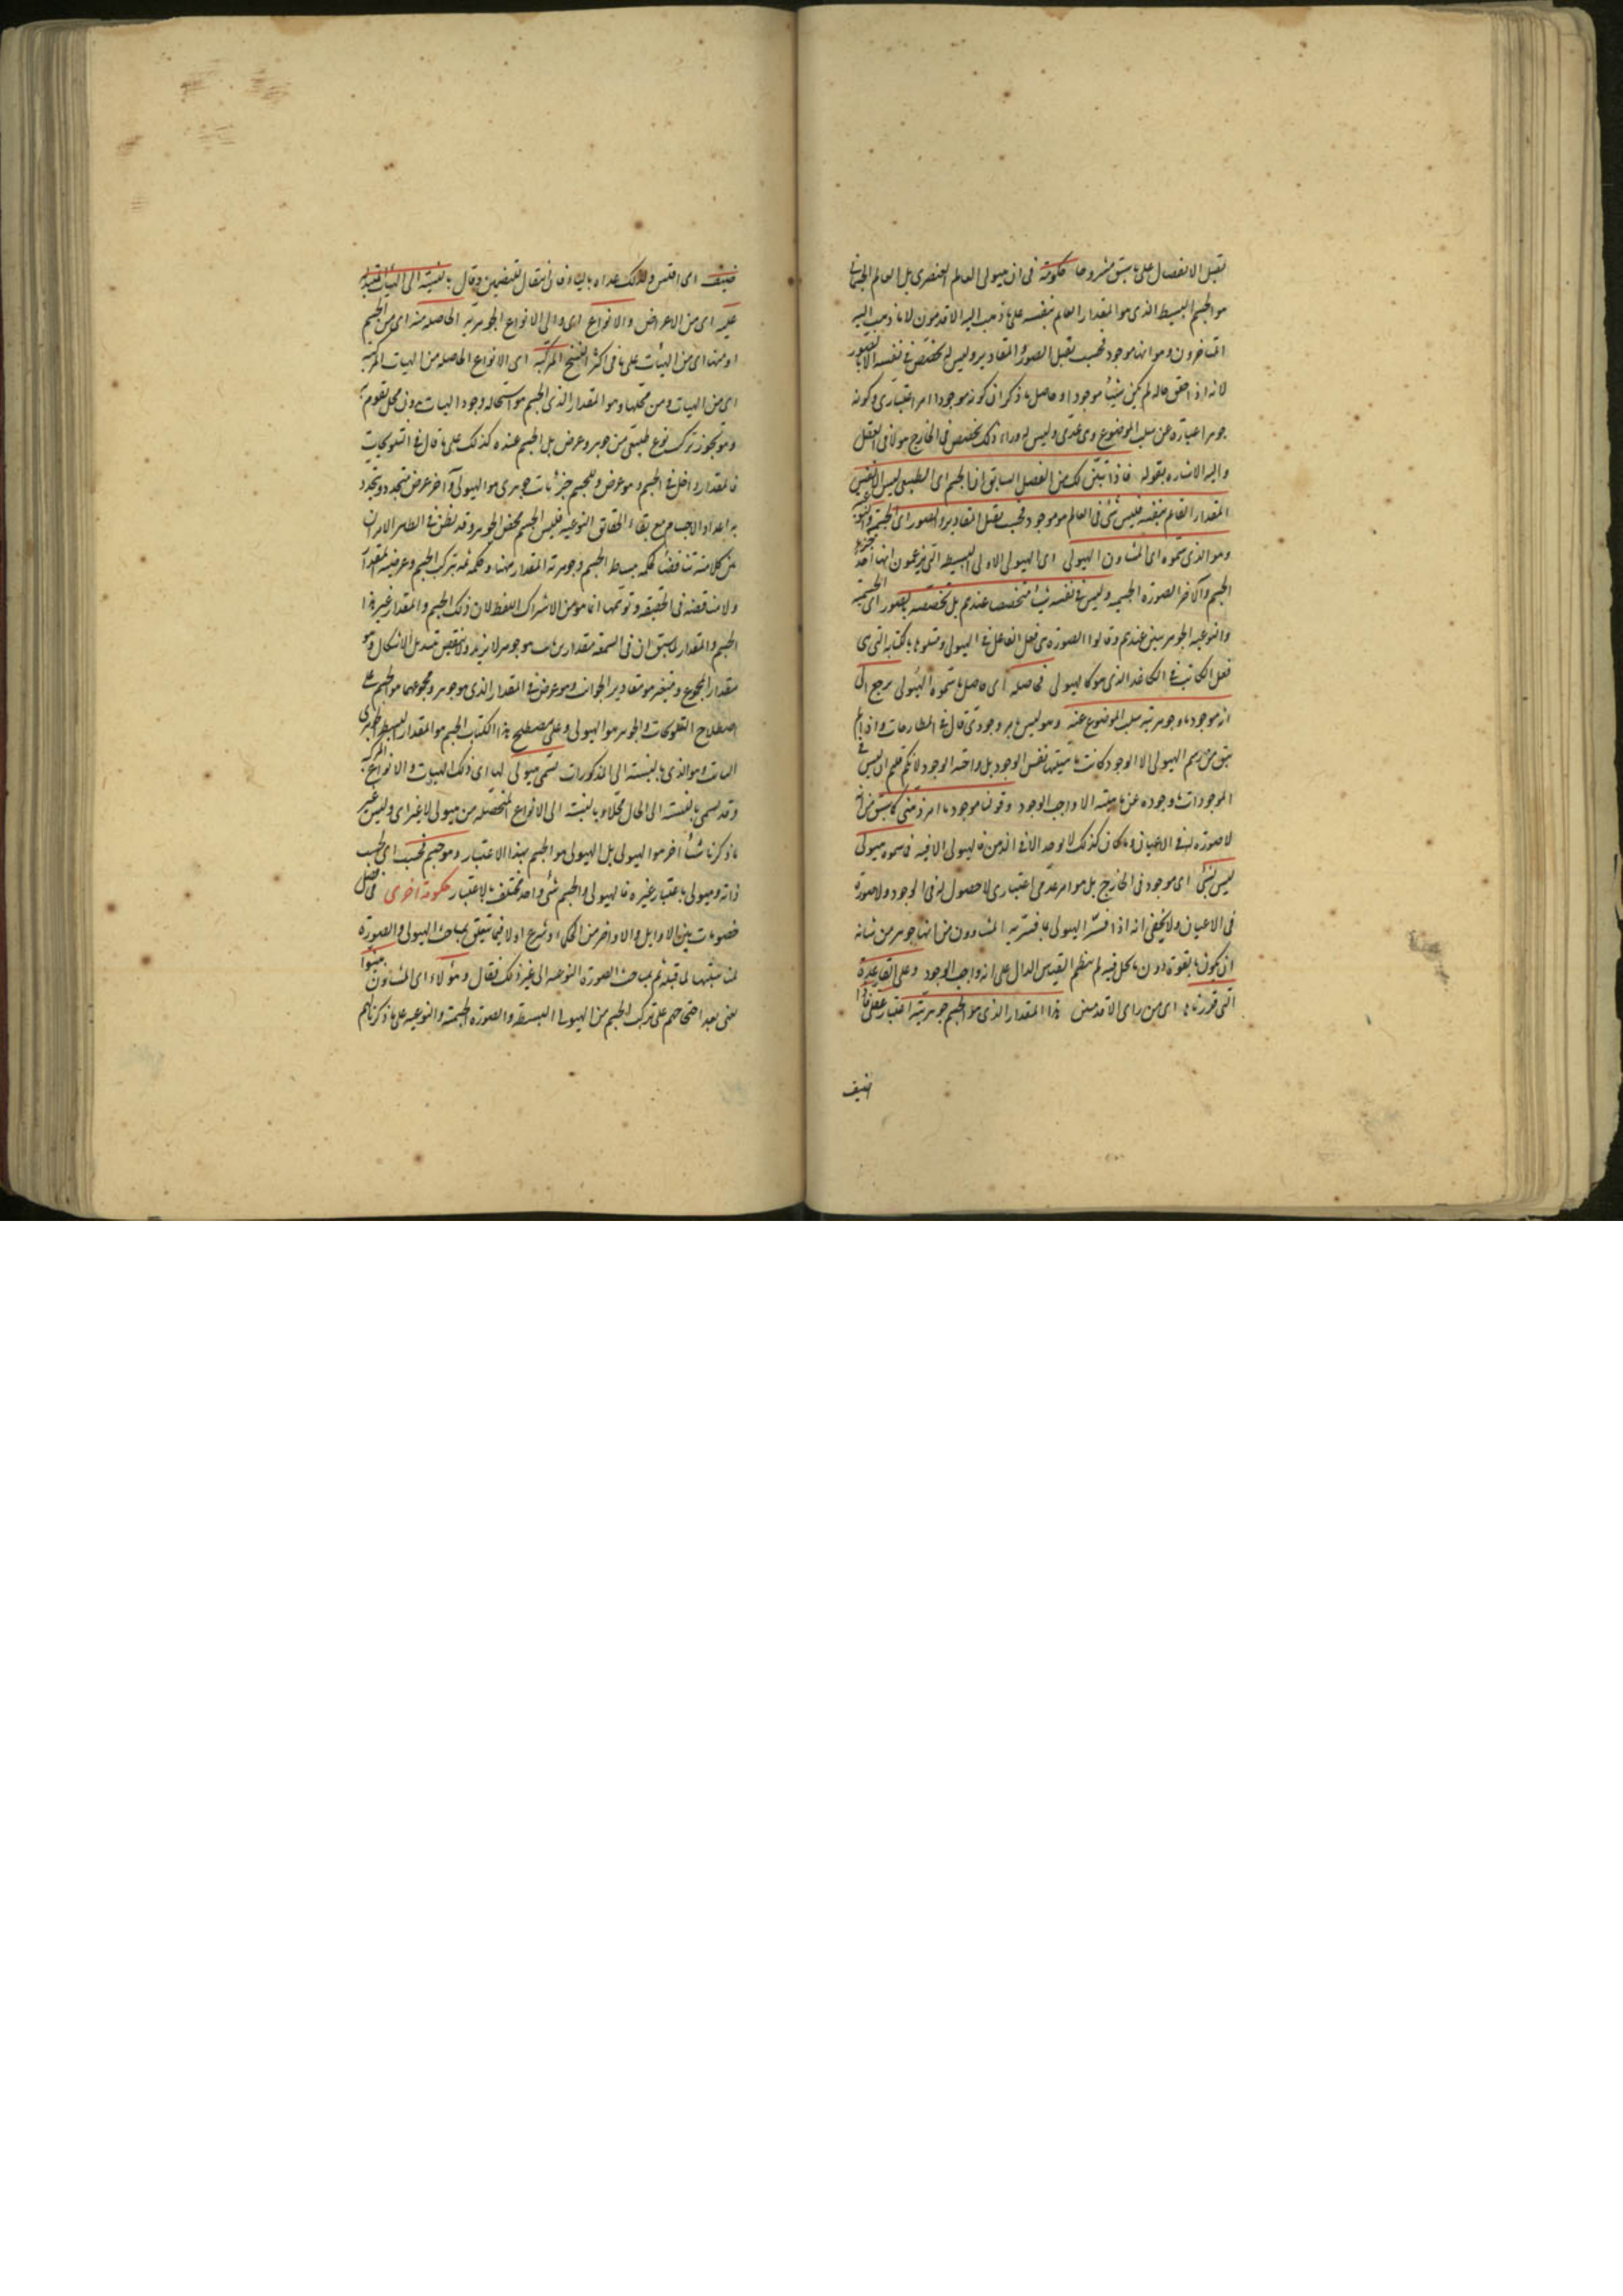 تقبل الانفصال على ما سبق مشروحا حكومة فى ان هيولى العالم العنصرى بل العالم الجسمانى
هو الجسم البسيط الذى هو المقدار القايم بنفسه على ما ذهب اليه الاقدمون لا ما ذهب اليه
المتاخرون وهو انها موجود فحسب تقبل الصور والمقادير وليس له تخصص فى نفسه الا بالصور
لانه اذا حقق حاله لم يكن شيئا موجودا و حاصل ما ذكر ان كونه موجودا امر اعتبارى وكونه
جوهرا عبارة عن سلب الموضوع وهى عدمى وليس له وراء ذلك تخصص فى الخارج هو لا فى العقل
واليه الاشاره بقوله فاذا تبين لك من الفصل السابق ان الجسم اى الطبيعى ليس الا نفس
المقدار القايم بنفسه فليس شئ فى العالم هو موجود فحسب يقبل المقادير والصور اى الجسمية والنوعية
وهو الذى سموه اى المشاون الهيولى اى الهيولى الاولى البسيطه التى يزعمون انها احد جزئى
الجسم والآخر الصوره الجسميه وليس فى نفسه شيئا متخصصا عندهم بل تخصصه بالصور اى الجسمية
والنوعيه الجوهريتين عندهم وقالوا الصوره هى فعل الفاعل فى الهيولى ومثلوها بالكتابه التى هى
فعل الكاتب فى الكاغد الذى هو كالهيولى فحاصله اى حاصل ما سموه الهيولى يرجع الى
انه موجود ما وجوهريته سلب الموضوع عنه وهو ليس بامر وجودى قال فى المطارحات واذا لم
يبق من رسم الهيولى الا الوجود كانت ماهيتها نفس الوجود بل واجبة الوجود لانكم قلتم ان ليس فى
الموجودات ما وجوده عين ماهيته الا واجب الوجود وقولنا موجود ما امر ذهنى كما سبق من انه
لا صورة له فى الاعيان وما كان كذلك لا يوجد الا فى الذهن فالهيولى الا فيه فما سموه هيولى
ليس بشئ اى موجود فى الخارج بل هو امر عدمى اعتبارى لا حصول له فى الوجود ولا صورة
فى الاعيان ولا يخفى انه اذا فسر الهيولى بما فسر به المشاوون من انها جوهر من شانه
ان يكون بالقوة دون ما يحل فيه لم ينتظم القياس الدال على انه واجب الوجود وعلى القاعدة
التى قررناها اى من راى الاقدمين هذا المقدار الذى هو الجسم جوهريته اعتبار عقلى فاذا
اضيف
اضيف اى
عليه اى من الاعراض والانواع اى والى الانواع الجوهريه الحاصله منه اى من الجسم
او منها اى من الهيئات على ما فى اكثر النسخ المركبه اى الانواع الحاصله من الهيات المركبة
اى من الهيات ومن محلها وهو المقدار الذى الجسم هو استحاله وجود الهيات بدون محل تقوم به
وهو تجوز تركب نوع طبيعى من جوهر وعرض بل الجسم عنده كذلك على ما قال فى التلويحات
فالمقدار داخل فى الجسم وهو عرض وللجسم جزء ثابت جوهرى هو الهيولى وآخر عرض متجدد وتجدد
به اعداد الاجسام مع بقاء الحقائق النوعيه فليس الجسم محض الجوهر وقد يظن فى الظاهر الامر ان
بين كلاميه تناقضا لحكمه ببساطة الجسم وجوهرية المقدار ههنا وحكمه ثمه بتركب الجسم وعرضية المقدار
ولا مناقضه فى الحقيقه وتوهمها انما هو من الاشتراك اللفظ لان ذلك الجسم والمقدار غير هذا
الجسم والمقدار لما سبق ان فى الشمعه مقدارين ثابت هو جوهر لا يزيد ولا ينقص بتبدل الاشكال وهو
مقدار المجموع ومتغير هو مقادير الجوانب وهو عرض فى المقدار الذى هو جوهر ومجموعهما هو الجسم على
اصطلاح التلويحات والجوهر هو الهيولى وعلى مصطلح هذا الكتاب الجسم هو المقدار البسيط الجوهرى
الثابت وهو الذى بالنسبة الى المذكورات تسمى هيولى لها اى ذلك الهيات والانواع المركبة
وقد يسمى بالنسبة الى الحال محلا وبالنسبة الى الانواع المتحصله من هيولى لا غير اى وليس غير
ما ذكرنا شيئا اخر هو الهيولى بل الهيولى هو الجسم بهذا الاعتبار وهو جسم فحسب اى بحسب
ذاته وهيولى باعتبار غيره فالهيولى والجسم شئ واحد مختلف بالاعتبار حكومة اخرى فى فصل
خصومات بين الاوايل والاواخر من الحكماء وشرع اولا فيما يتعلق بمباحث الهيولى والصورة
لمناسبتها لما قبله ثم بمباحث الصورة النوعيه الى غير ذلك فقال وهؤلاء اى المشاؤن بينوا
يعنى بعد احتجاجهم على تركب الجسم من الهيولى البسيطه والصوره الجسمية والنوعيه على ما ذكرناه